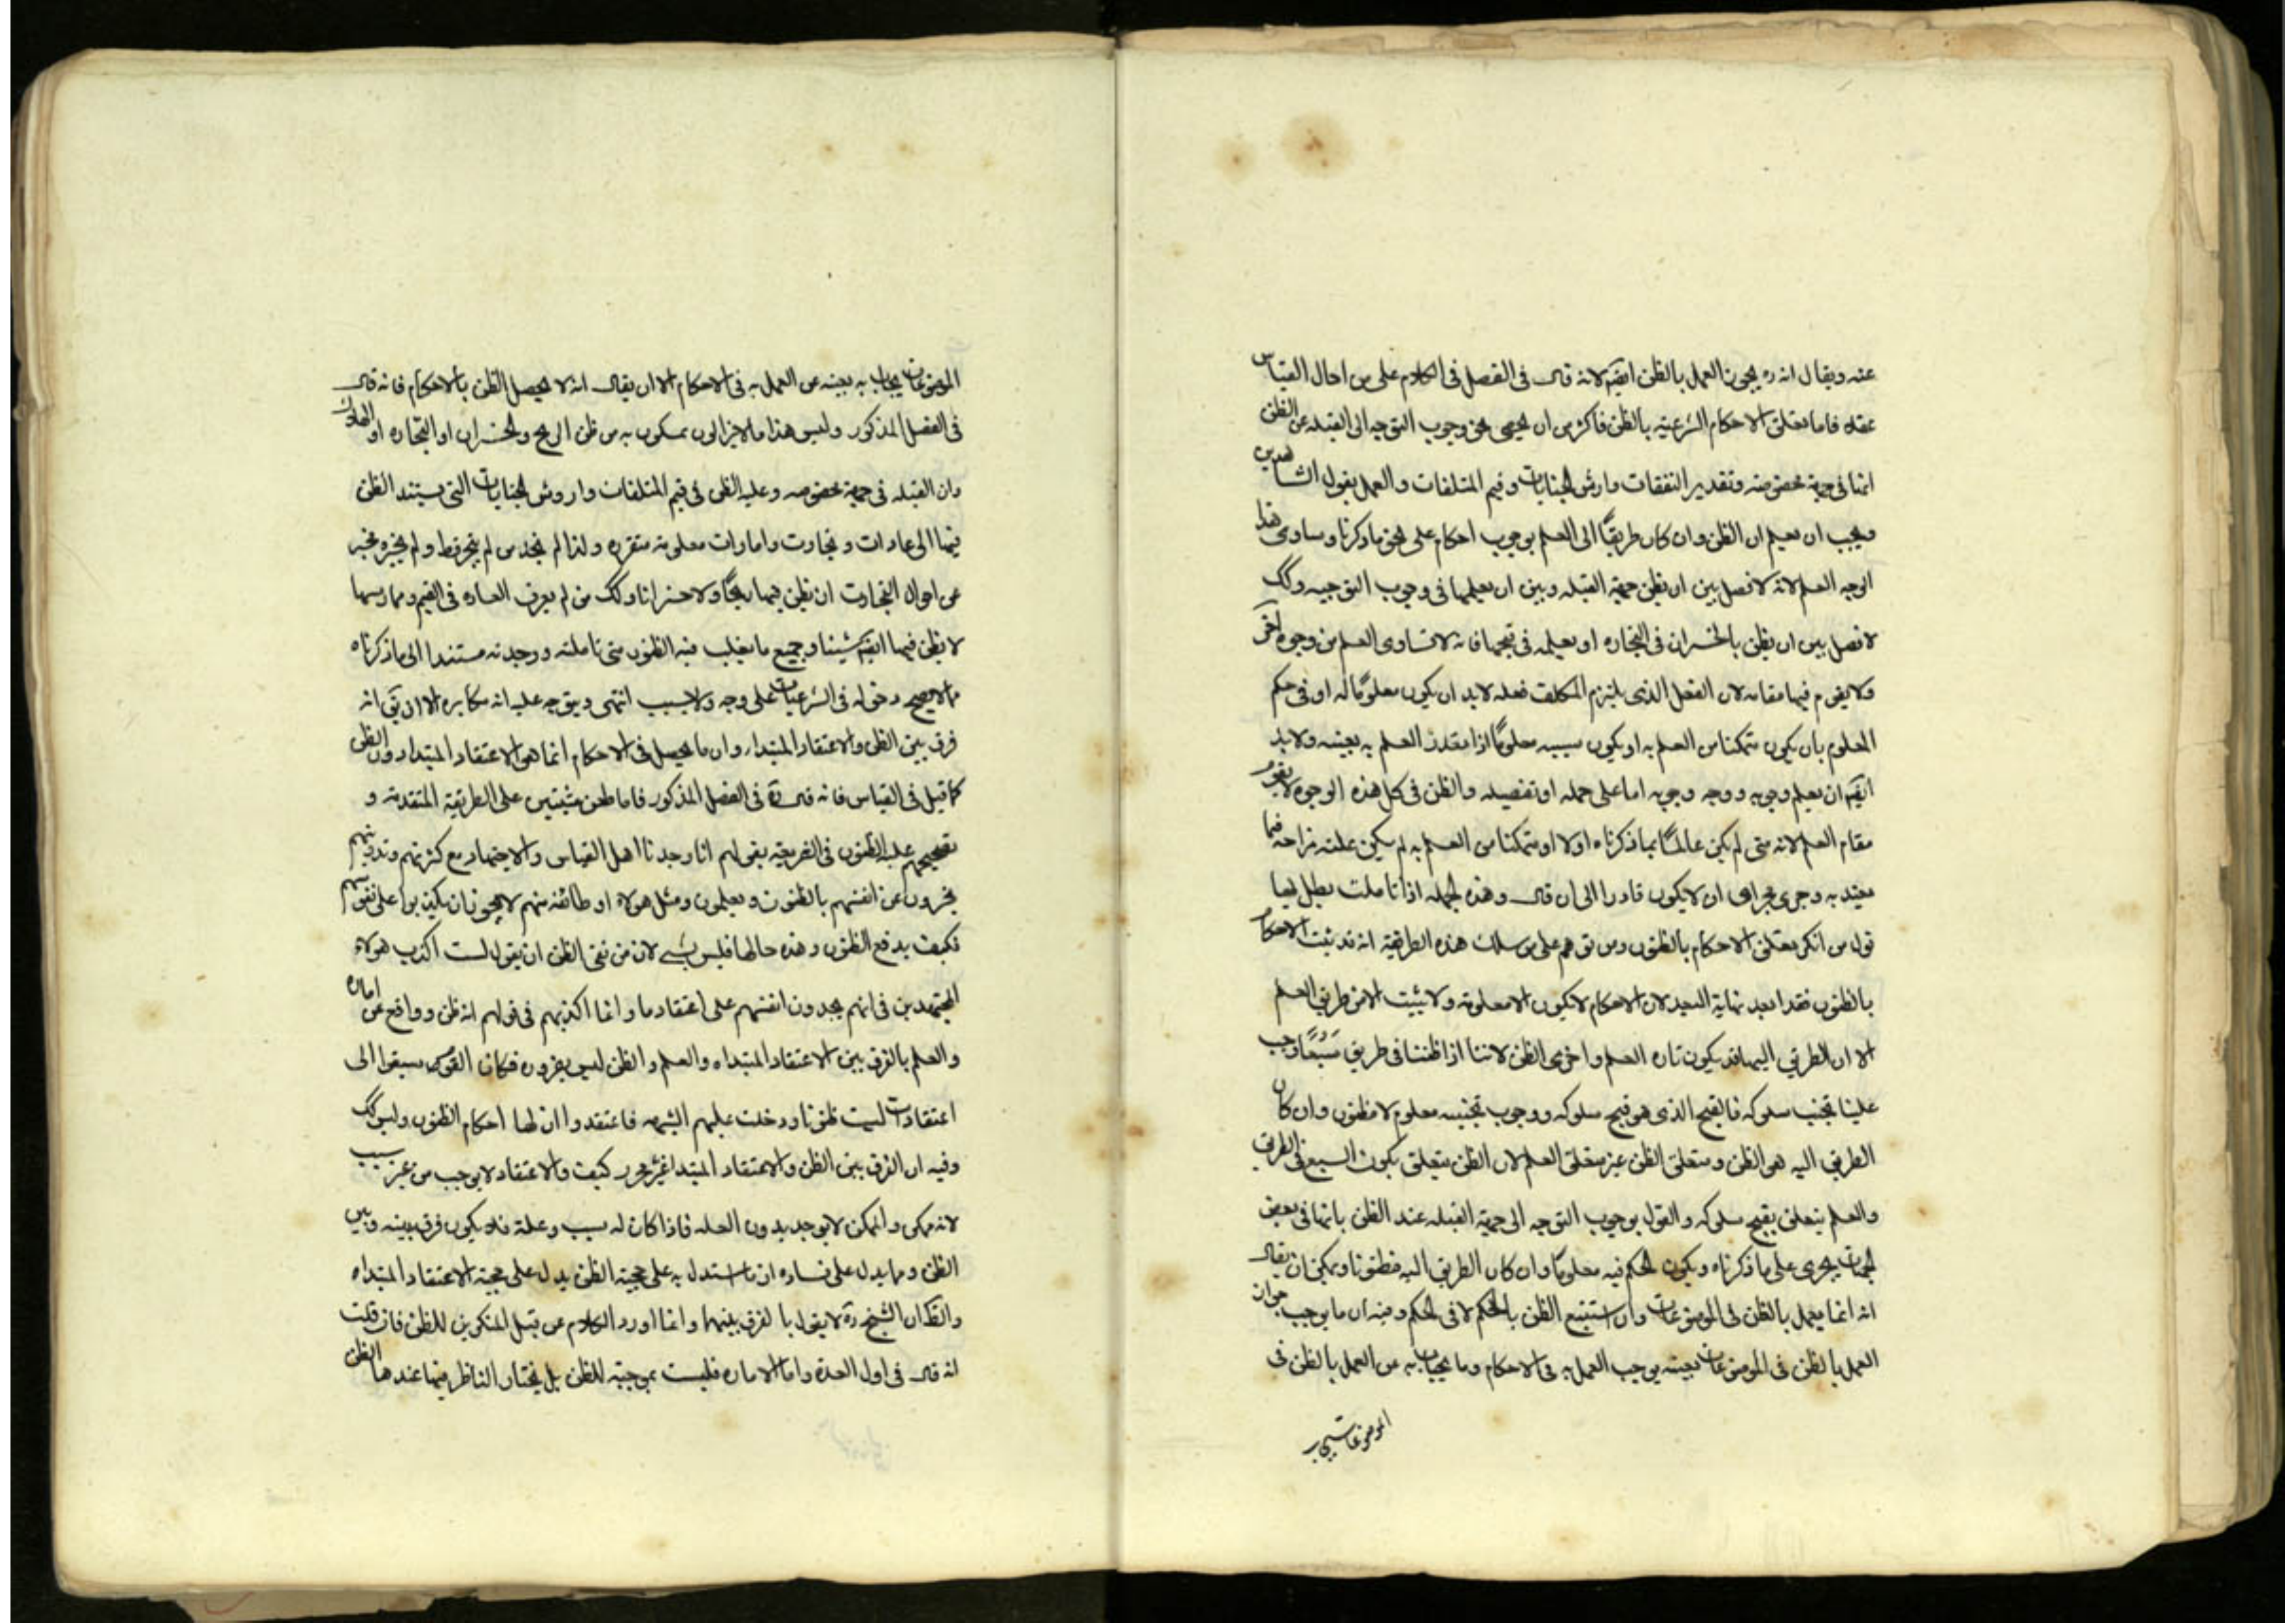 عنه ويقال انه ره يجوز العمل بالظن ايضا لانه قال فى الفصل فى الكلام على من احال القياس
عقلا فاما تعلق الاحكام الشرعية بالظن فاكثر من ان يحصى نحو وجوب التوجه الى القبلة عن الظن
انها فى جهة مخصوصه وتقدير النفقات وارش الجنايات وقيم المتلفات والعمل بقول الشاهدين
ويجب ان يعلم ان الظن وان كان طريقًا الى العلم بوجوب احكام على نحو ما ذكرنا وساوى هذا
الوجه العلم لانه لا فصل بين ان يظن جهة القبله وبين ان يعلمها فى وجوب التوجيه وكك
لا فصل بين ان يظن بالخسران فى التجاره او يعلمه فى قبحها فانه لا تساوى العلم من وجوه اخر
ولا يقوم فيها مقامه لان الفعل الذى يلتزم المكلف فعله لابد ان يكون معلومًا له او فى حكم
المعلوم بان يكون متمكنا من العلم به او يكون سببه معلومًا اذا تعذر العلم به بعينه ولابد
ايضا ان يعلم وجوبه ووجه وجوبه اما على جمله او تفصيله والظن فى كل هذه الوجوه لا يقوم
مقام العلم لانه متى لم يكن عالمًا بما ذكرناه اولا او متمكنا من العلم به لم يكن علته مزاحة فيما
تعبد به وجرى مجرى ان لا يكون قادرا الى ان قال وهذه الجمله اذا تأملت بطل بها
قول من انكر تعلق الاحكام بالظنون ومن توهم على من سلك هذه الطريقة انه قد يثبت الاحكام
بالظنون فقد ابعد نهاية البعد لان الاحكام لا يكون الا معلومة ولا يثبت الا من طريق العلم
الا ان الطريق اليها قد يكون تارة العلم واخرى الظن لاننا اذا ظننا فى طريق سبعًا وجب
علينا تجنب سلوكه فالقبح الذى هو قبح سلوكه ووجوب تجنبه معلوم لا مظنون وان كان
الطريق اليه هو الظن ومتعلق الظن غير متعلق العلم لان الظن يتعلق بكون السبع فى الطريق
والعلم يتعلق بقبح سلوكه والقول بوجوب التوجه الى جهة القبله عند الظن بانها فى بعض
الجهات يجرى على ما ذكرناه ويكون الحكم فيه معلومًا وان كان الطريق اليه مظنونا ويمكن ان يقال
انه انما يعمل بالظن فى الموضوعات وان استتبع الظن بالحكم لا فى الحكم وفيه ان ما يوجب جواز
العمل بالظن فى الموضوعات بعينه يوجب العمل به فى الاحكام وما يجاب به عن العمل بالظن فى
الموضوعات يجاب
الموضوعات يجاب به بعينه عن العمل به فى الاحكام الا ان يقال انه لا يحصل الظن بالاحكام فانه قال
فى الفصل المذكور وليس هذا مما لا يزالون يتمسكون به من ظن الربح والخسران او التجاره او الهلاك
وان القبله فى جهة مخصوصه وغلبة الظن فى قيم المتلفات واروش الجنايات التى يستند الظن
فيها الى عادات وتجارت وامارات معلومة متقرره ولذا لم نجد من لم يتجر قط ولم يخبره مخبر
عن احوال التجارت ان يظن فيها ربحًا ولا خسرانا وكك من لم يعرف العاده فى القيم وممارسها
لا يظن فيها ايضا شيئا وجميع ما يغلب فيه الظنون متى تاملته وجدته مستندا الى ما ذكرناه
مما لا يصح دخوله فى الشرعيات على وجه ولا بسبب انتهى ويتوجه عليه انه مكابره الا ان يق انه
فرق بين الظن والاعتقاد المبتداء وان ما يحصل فى الاحكام انما هو الاعتقاد المبتداء دون الظن
كما قيل فى القياس فانه قال ره فى الفصل المذكور فاما طعن مثبتين على الطريقة المتقدمة و
تصحيحهم غلبة الظنون فى الشريعة بقولهم انا وجدنا اهل القياس والاجتهاد مع كثرتهم وتدينهم
يخبرون عن انفسهم بالظنون ويعلمون ومثل هولاء او طائفة منهم لا يجوز ان يكذبوا على نفوسهم
فكيف يدفع الظنون وهذه حالها فليس بشئ لان من نفى الظن ان يقول لست اكذب هولاء
المجتهدين فى انهم يجدون انفسهم على اعتقاد ما وانما اكذبهم فى قولهم انه ظن وواقع عن امارة
والعلم بالفرق بين الاعتقاد المبتداء والعلم والظن ليس بضروره فكان القوم سبقوا الى
اعتقادات ليست ظنونا ودخلت عليهم الشبهه فاعتقدوا ان لها احكام الظنون وليس كك
وفيه ان الفرق بين الظن والاعتقاد المبتدا غير محرر كيف والاعتقاد لا يوجب من غير سبب
لانه ممكن والممكن لا يوجد بدون العله فاذا كان له سبب وعلة فلا يكون فرق بينه وبين
الظن ومما يدل على فساده ان ما استدل به على حجية الظن يدل على حجية الاعتقاد المبتداء
والظ ان الشيخ ره لا يقول بالفرق بينهما وانما اورد الكلام من قبل المنكرين للظن فان قلت
انه قال فى اول العدة واما الامارة فليست بموجبة للظن بل يختار الناظر فيها عندها الظن